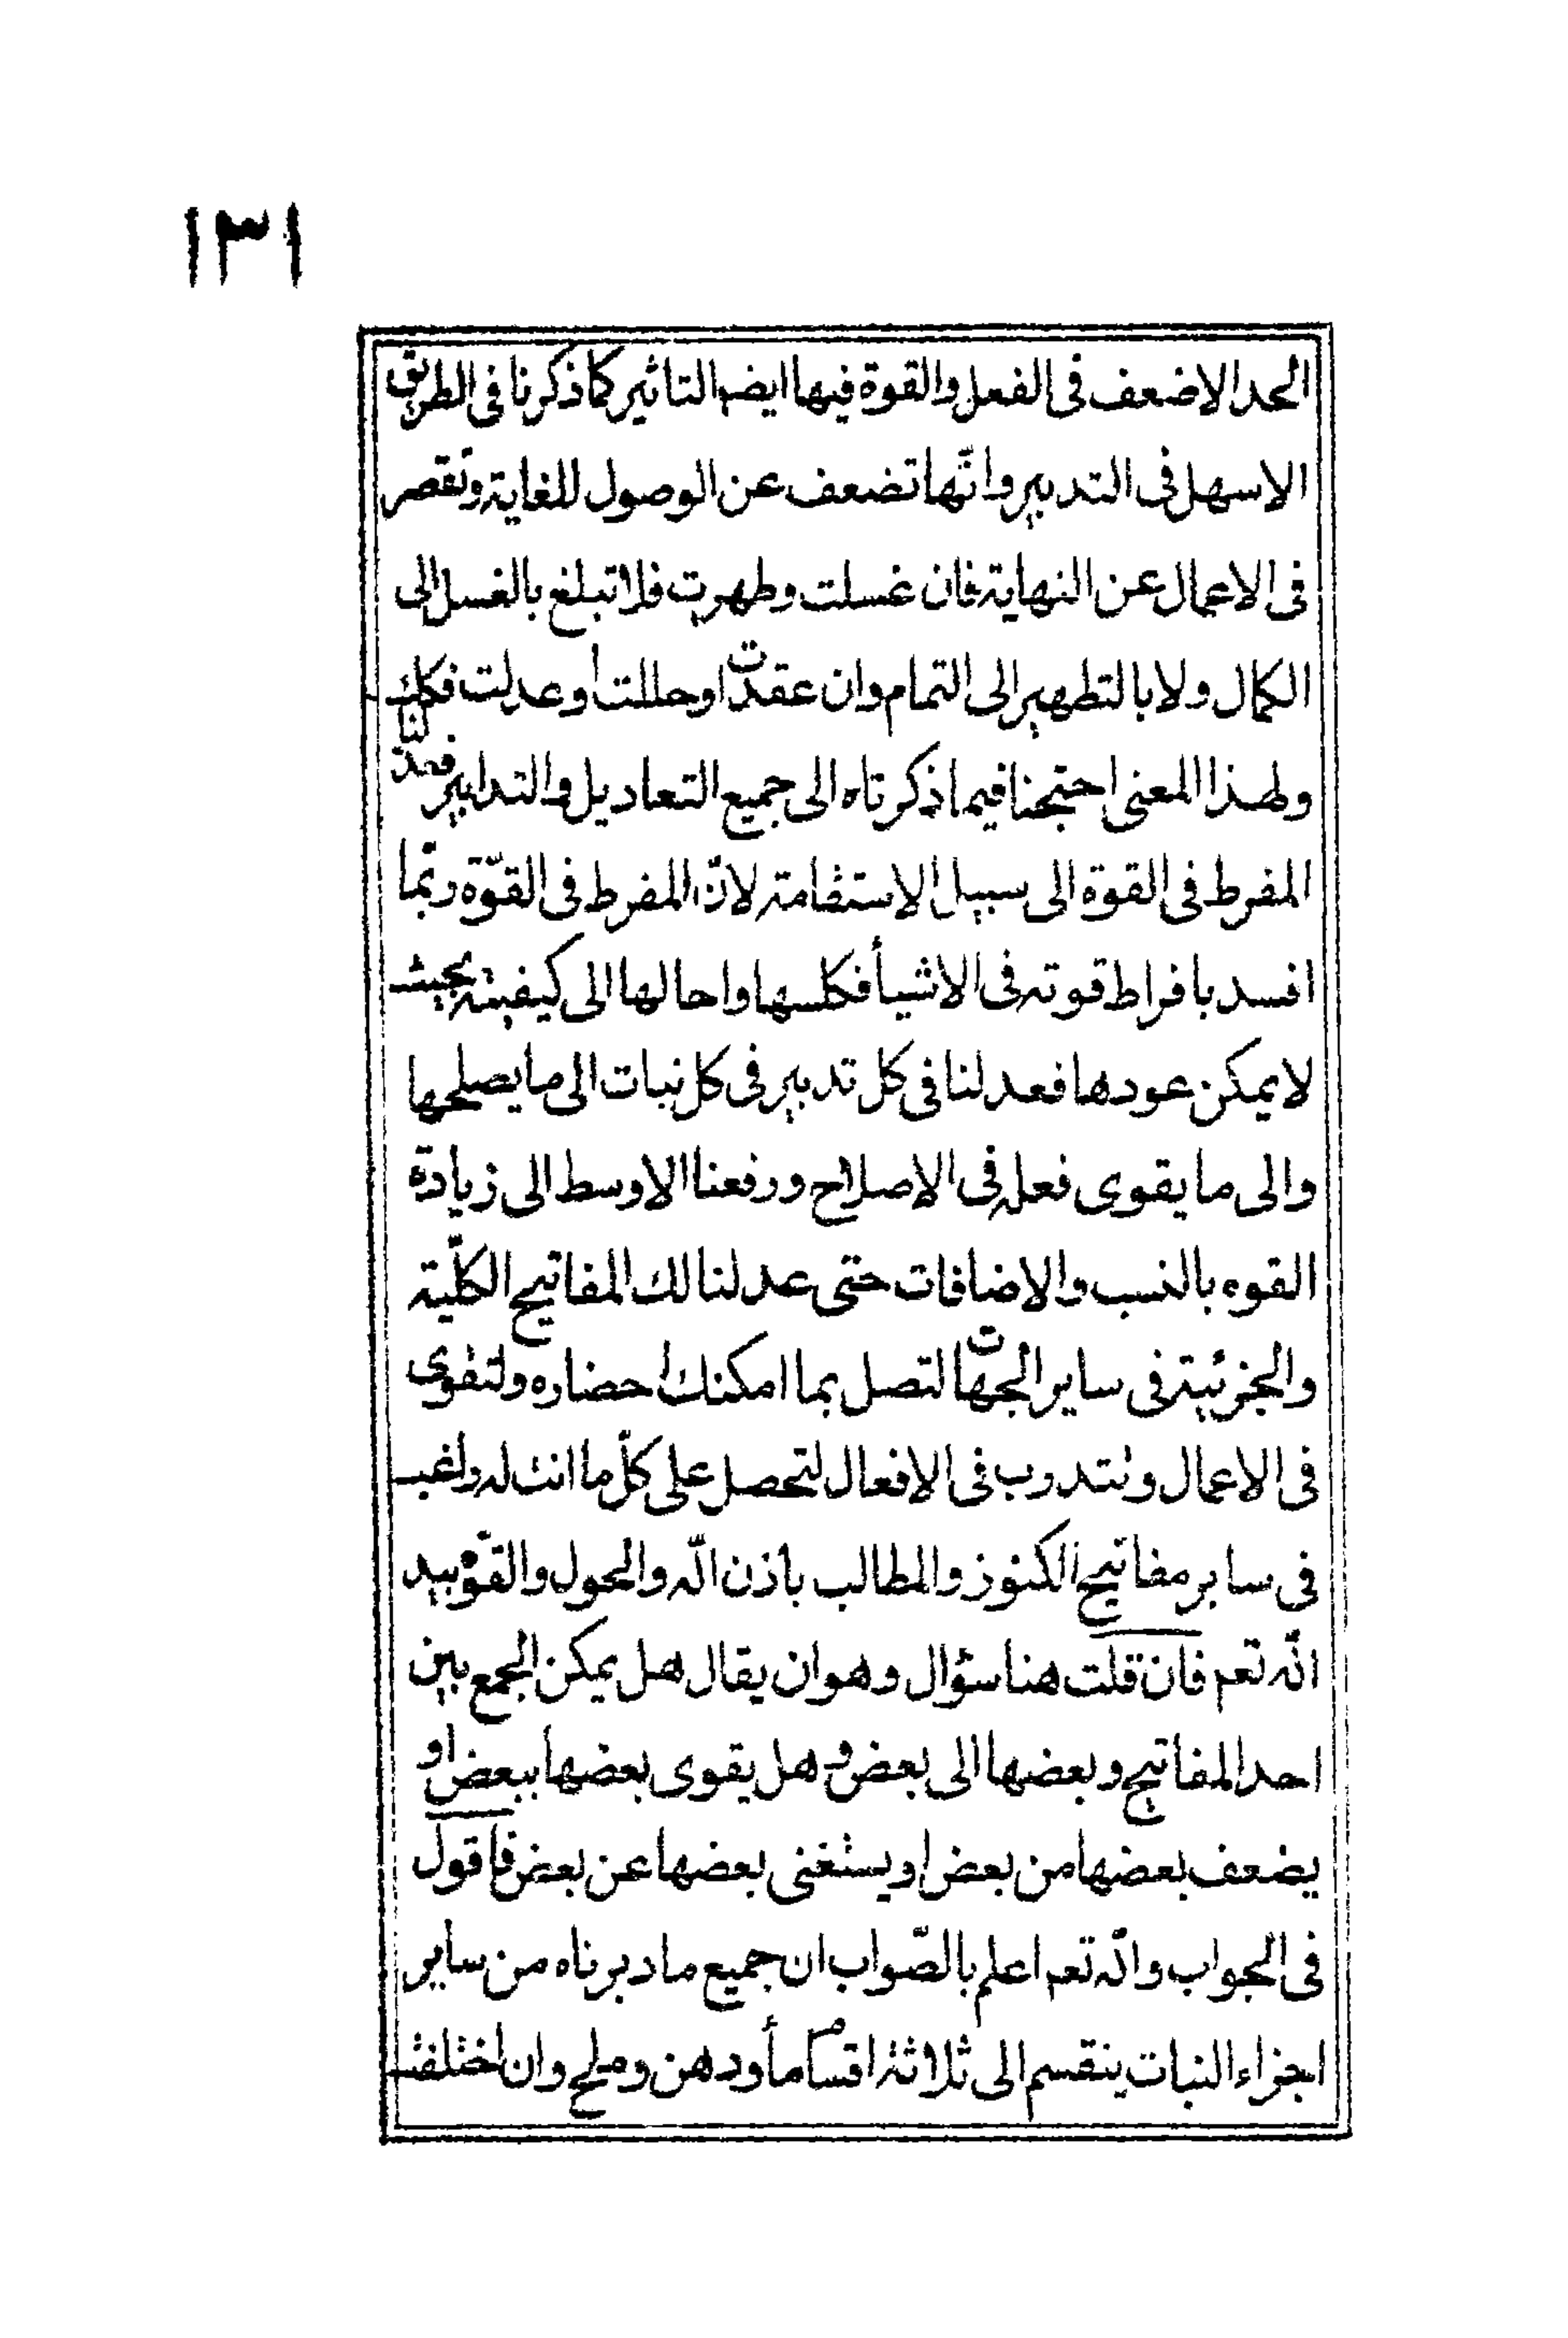 ١٣١
الحد الاضعف فى الفعل والقوة فيها ايضا التاثير كما ذكرنا فى الطريق
الاسهل فى التدبير وانّها تضعف عن الوصول للغاية وتقصر
فى الاعمال عن النهاية فان غسلت وطهرت فلا تبلغ بالغسل الى
الكمال ولا بالتطهير الى التمام وان عقدت او حللت أو عدلت فكك
ولهذا المعنى احتجنا فيما ذكرناه الى جميع التعاديل والتدابير فعدلنا
المفرط فى القوة الى سبيل الاستقامة لانّ المفرط فى القوّة ربّما
افسد بافراط قوته فى الاشيأ فكلسها واحالها الى كيفية بحيث
لا يمكن عودها فعدلنا فى كل تدبير فى كل نبات الى ما يصلحها
والى ما يقوى فعله فى الاصلاح ورفعنا الاوسط الى زيادة
القوه بالنسب والاضافات حتى عدلنا لك المفاتيح الكلّية
والجزئية فى ساير الجهات لتصل بما امكنك احضاره ولتقوى
فى الاعمال وتتدرب فى الافعال لتحصل على كلّ ما انت له راغب
فى ساير مفاتيح الكنوز والمطالب باذن الله والحول والقوّة بيد
الله تعم فان قلت هنا سؤال وهو ان يقال هل يمكن الجمع بين
احد المفاتيح وبعضها الى بعض وهل يقوى بعضها ببعض او
يضعف بعضها من بعض او يستغنى بعضها عن بعض فاقول
فى الجواب والله تعم اعلم بالصّواب ان جميع ما دبرناه من ساير
اجزاء النبات ينقسم الى ثلاثة اقسام مأ ودهن وملح وان اختلفت